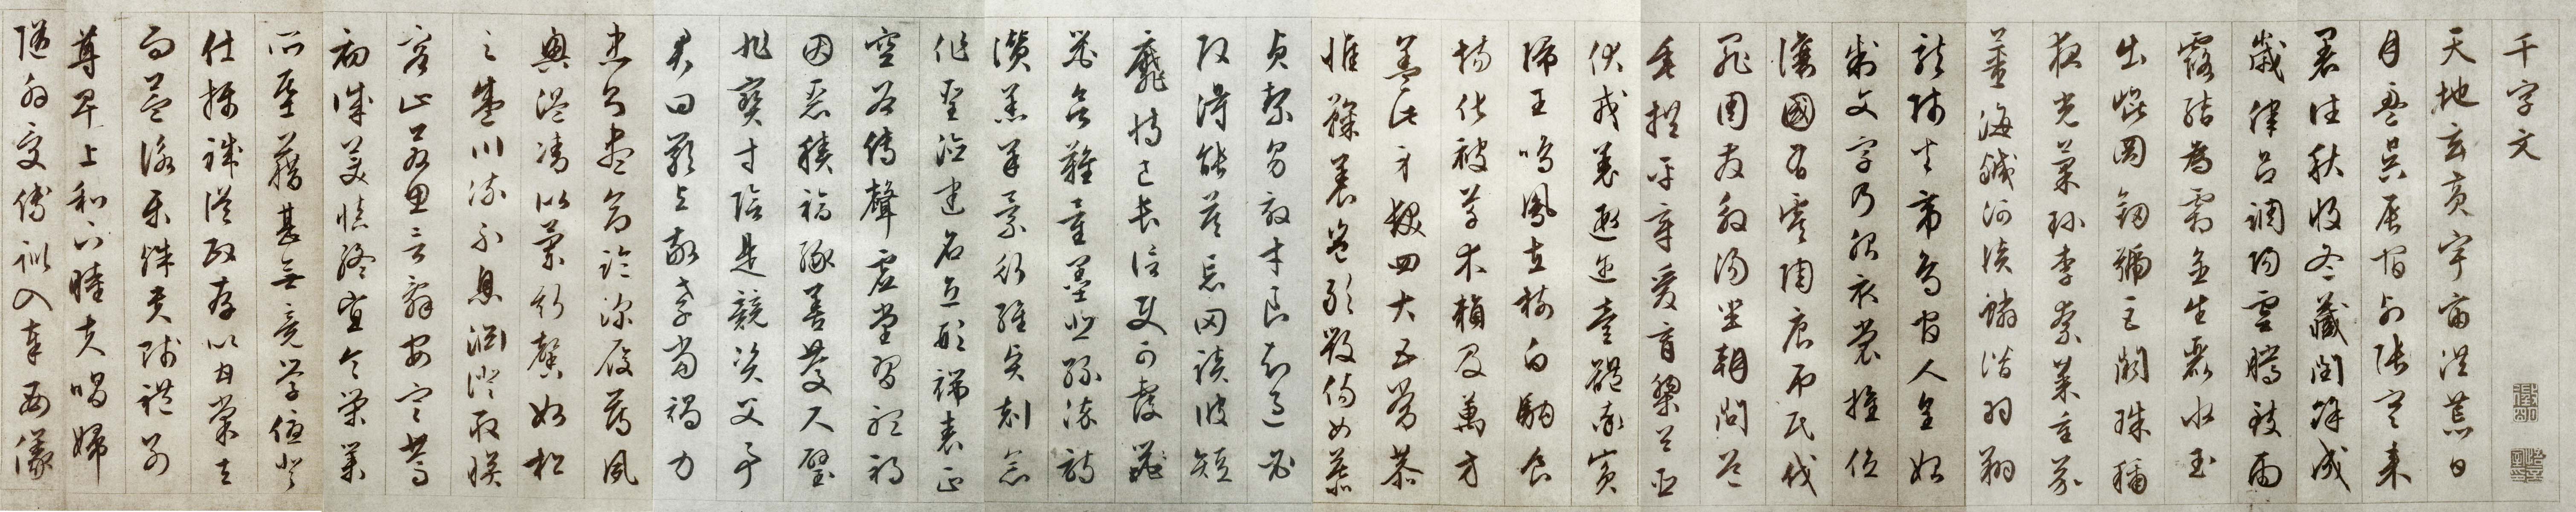 千字文
天地玄黃宇宙洪荒日
月盈昃辰宿列張寒來
暑往秋收冬藏閏餘成
歲律呂調陽雲騰致雨
露結為霜金生麗水玉
出崑岡劍號巨闕珠稱
夜光菓珍李柰菜重芥
薑海鹹河淡鱗潛羽翔
龍師火帝鳥官人皇始
制文字乃服衣裳推位
讓國有虞陶唐弔民伐
罪周發殷湯坐朝問道
垂拱平章愛育黎首臣
伏戎羌遐邇壹體率賓
歸王鳴鳳在樹白駒食
場化被草木賴及萬方
蓋此身髮四大五常恭
惟鞠養豈敢毀傷女慕
貞潔男效才良知過必
改得能莫忘罔談彼短
靡恃己長信使可覆
器欲難量墨悲絲染詩
讚羔羊景行維賢剋念
作聖德建名立形端表正
空谷傳聲虛堂習聽禍
因惡積福緣善慶尺璧
非寶寸陰是競資父事
君曰嚴與敬孝當竭力
忠則盡命臨深履薄夙
興溫凊似蘭斯馨如松
之盛川流不息淵澄取映
容止若思言辭安定篤
初誠美慎終宜令榮業
所基籍甚無竟學優登
仕攝職從政存以甘棠去
而益詠樂殊貴賤禮別
尊卑上和下睦夫唱婦
隨外受傅訓入奉母儀